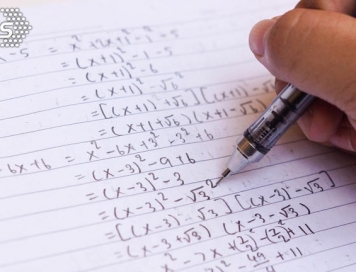 S
x - 5 = x² + 2x + 1² - 1 - 5
= (x+1)² - 1 - 5
= (x+1)² - 6
= [(x+1) + √6][(x+1) - √6]
= (x+1+√6)(x+1-√6)
- 6x + 6 = x² - 6x + 3² - 3² + 6
= (x-3)² - 9 + 6
= (x-3)² - 3
= (x-3)² - √3²
= [(x-3) + √3][(x-3) - √3]
= (x-3+√3)(x-3-√3)
x² - 7x + (7/2)² - (7/2)² + 11
)² - 49 + 11